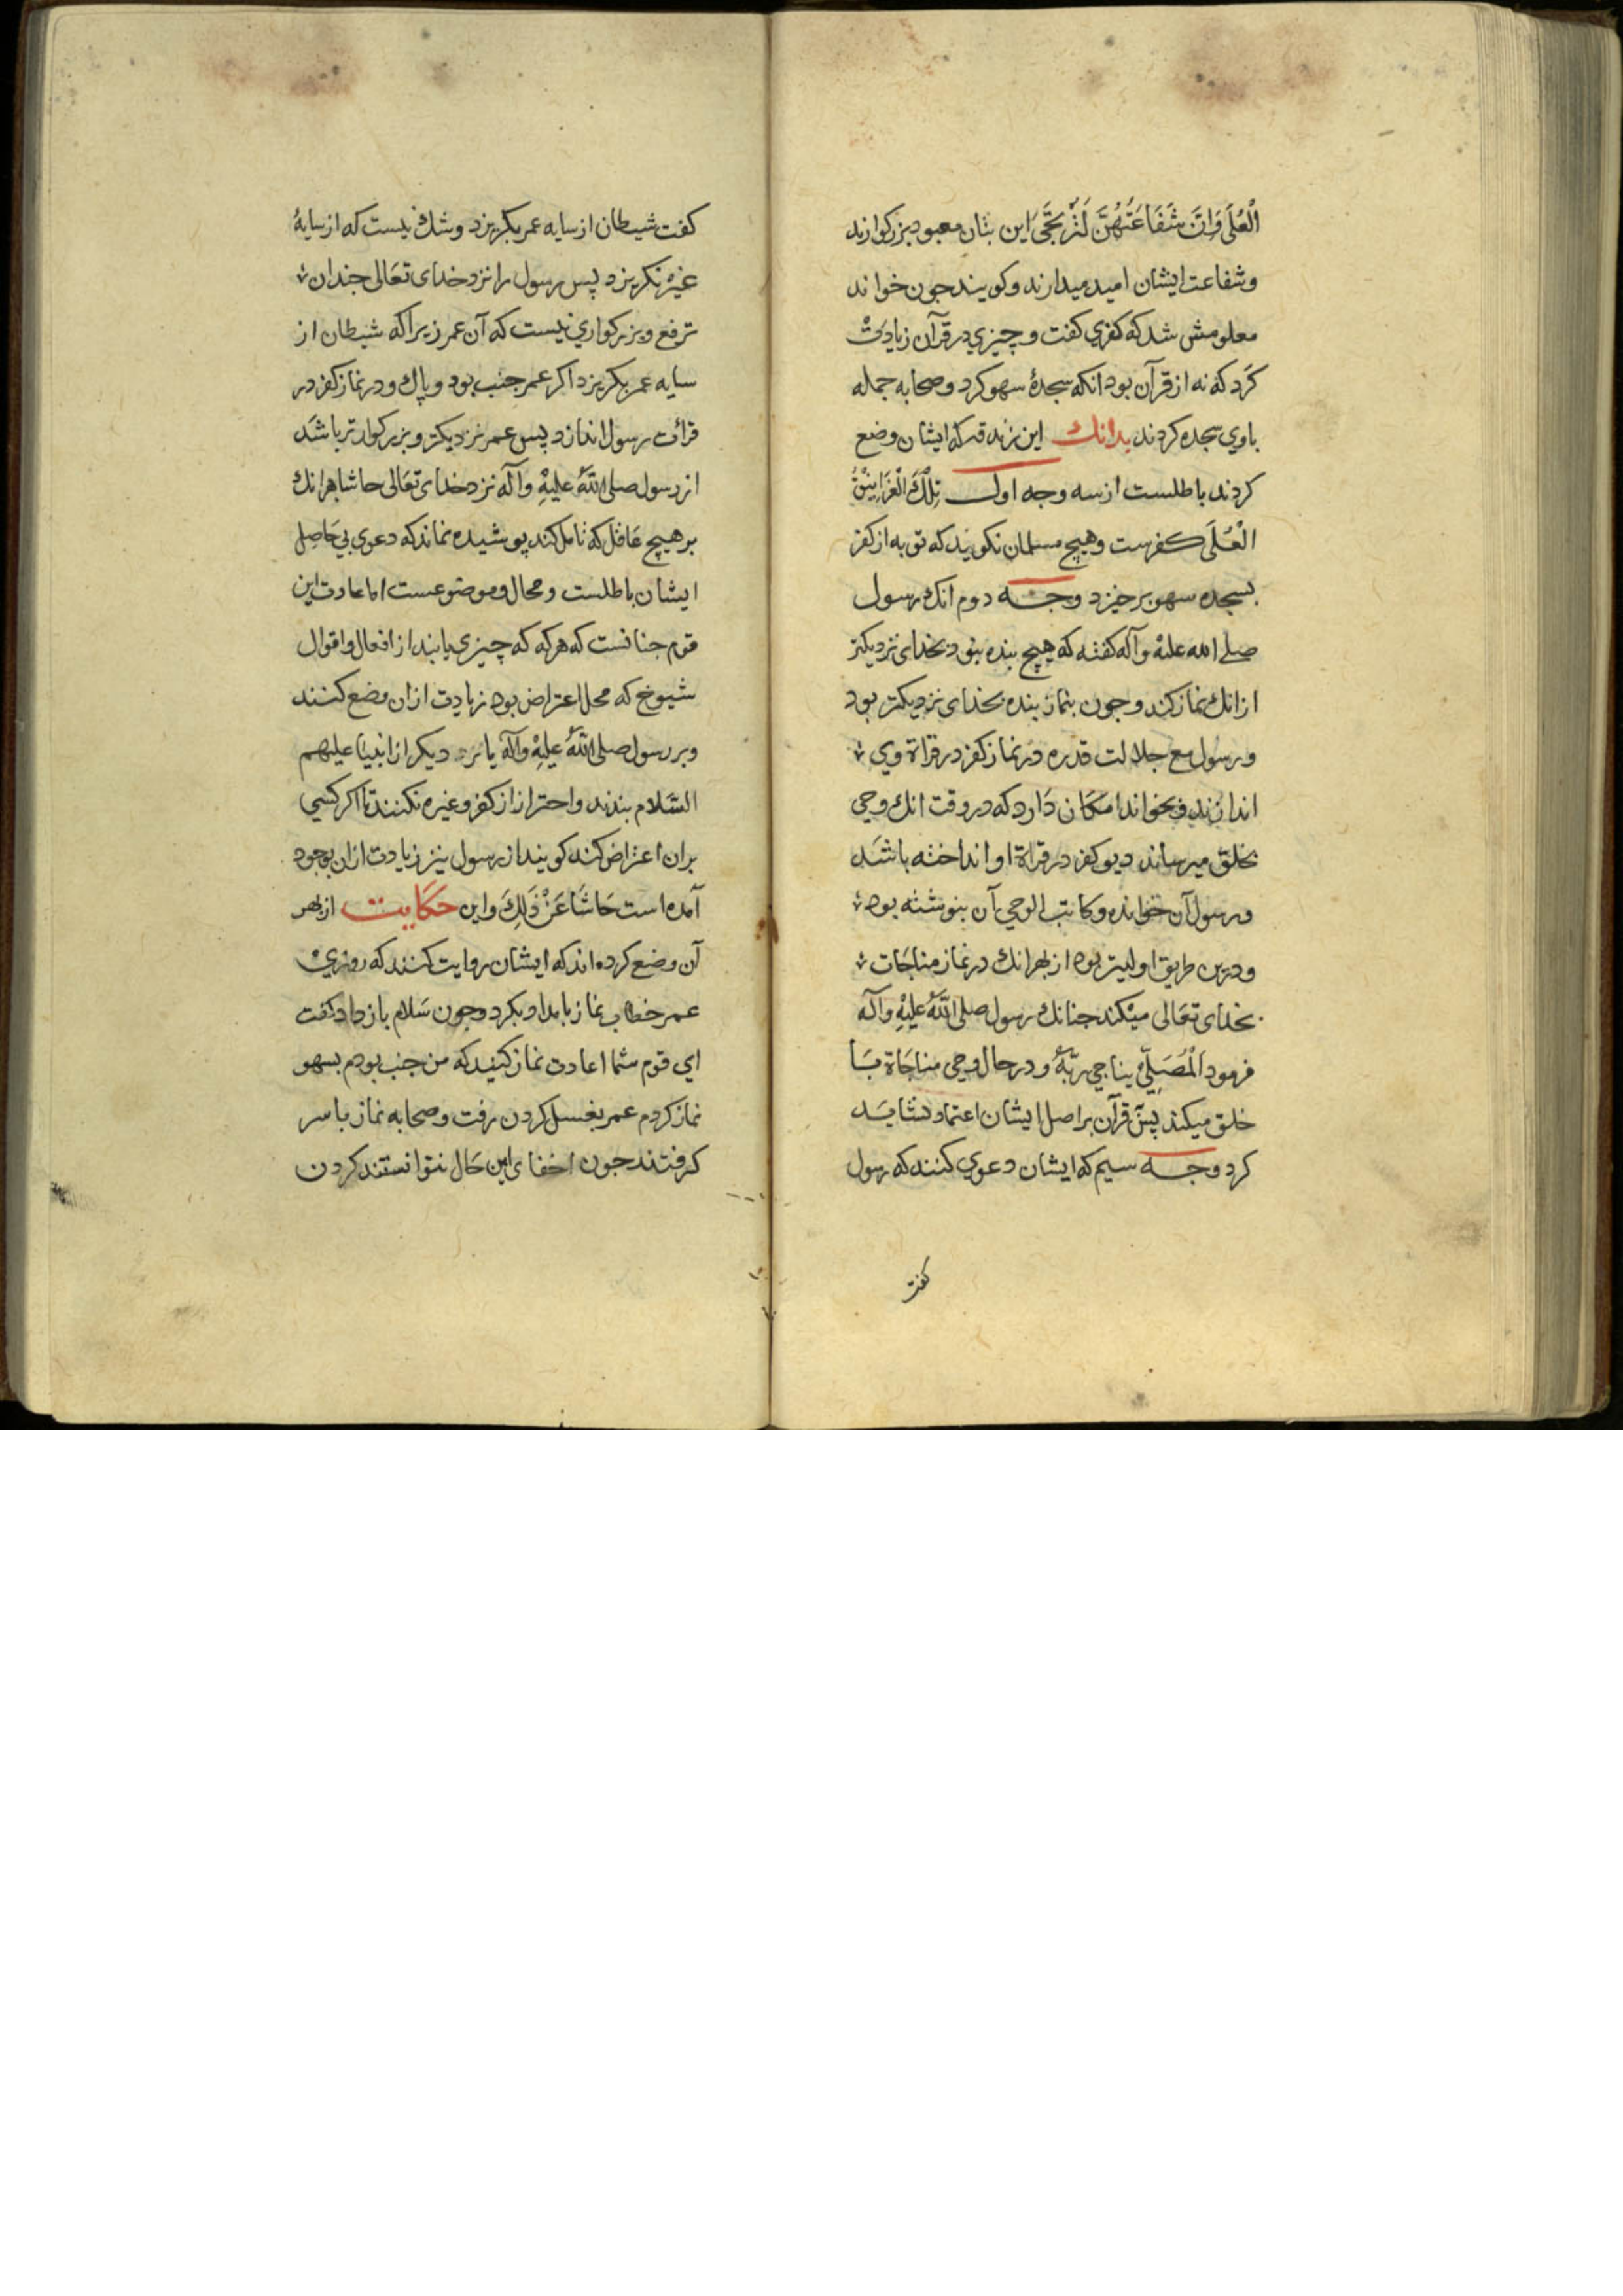 الْعُلَی وَاِنَّ شَفَاعَتَهُنَّ لَتُرْتَجَّی این بتان معبود بزرکوارند
وشفاعت ایشان امید میدارند وکویند جون خواند
معلومش شد که کفری کفت و چیزی در قرآن زیادَتْ
کَرد که نه از قرآن بود انکه سجدهٔ سهو کرد وصحابه جمله
باوی سجده کردند بدانك این زندقه که ایشان وضع
کردند باطلست از سه وجه اول تِلْكَ الْغَرَانِیْقُ
الْعُلَی کفرست وهیچ مسلمان نکوید که توبه از کفر
بسجده سهو برخیزد وجه دوم انك رسول
صلی الله علیه وآله کفته که هیچ بنده نبود بخدای نزدیکتر
ازانك نماز کند وجون بنماز بنده بخدای نزدیکتر بود
ورسول مع جلالت قدره در نماز کفر در قراة وی
اندازند وبخواند امکان دارد که در وقت انك وحی
بخلق میرساند دیو کفر در قراة او انداخته باشد
ورسول آن خوانده وکاتب الوحی آن بنوشته بود
ودرین طریق اولیتر بود از بهر انك در نماز مناجات
بخدای تعالی میکند جنانك رسول صلی اللّٰه علیْهِ وآله
فرمود الْمُصَلِّی یناجی ربّهُ ودر حال وحی مناجاة با
خلق میکند پس قرآن بر اصل ایشان اعتماد نشاید
کرد وجه سیم که ایشان دعوی کنند که رسول
کفت
کفت شیطان از سایه عمر بکریزد وشك نیست که از سایهٔ
غیرْ نکریزد پس رسول را نزد خدای تعالی جندان
ترفع وبزرکواری نیست که آن عمر زیرا که شیطان از
سایه عمر بکریزد اکر عمر جنب بود وپاك ودر نماز کفر در
قرائت رسول اندازد پس عمر نزدیکتر وبزرکوارتر باشد
از رسول صلی اللّٰه علیْهِ وآله نزد خدای تعالی حاشا هرانك
بر هیچ عاقل که تامل کند پوشیده نماند که دعوی بی حاصل
ایشان باطلست ومحال وموضوعست اما عادت این
قوم جنانست که هرکه که چیزی یابند از افعال واقوال
شیوخ که محل اعتراض بود زیادت ازان وضع کنند
وبر رسول صلی اللّٰه علیْهِ وآله یا بر دیکر از انبیا علیهم
السَّلام بندند واحتراز از کفر وغیره نکنند تا اکر کسی
بران اعتراض کند کویند از رسول نیز زیادت ازان بوجود
آمده است حَاشَا عَنْ ذَلِكَ واین حکایت از بهر
آن وضع کرده‌اند که ایشان روایت کنند که روزی
عمر خطاب نماز بامداد بکرد وجون سَلام باز داد کفت
ای قوم شما اعادت نماز کنید که من جنب بودم بسهو
نماز کردم عمر بغسل کردن رفت وصحابه نماز با سر
کرفتند جون اخفای این حَال نتوانستند کردن